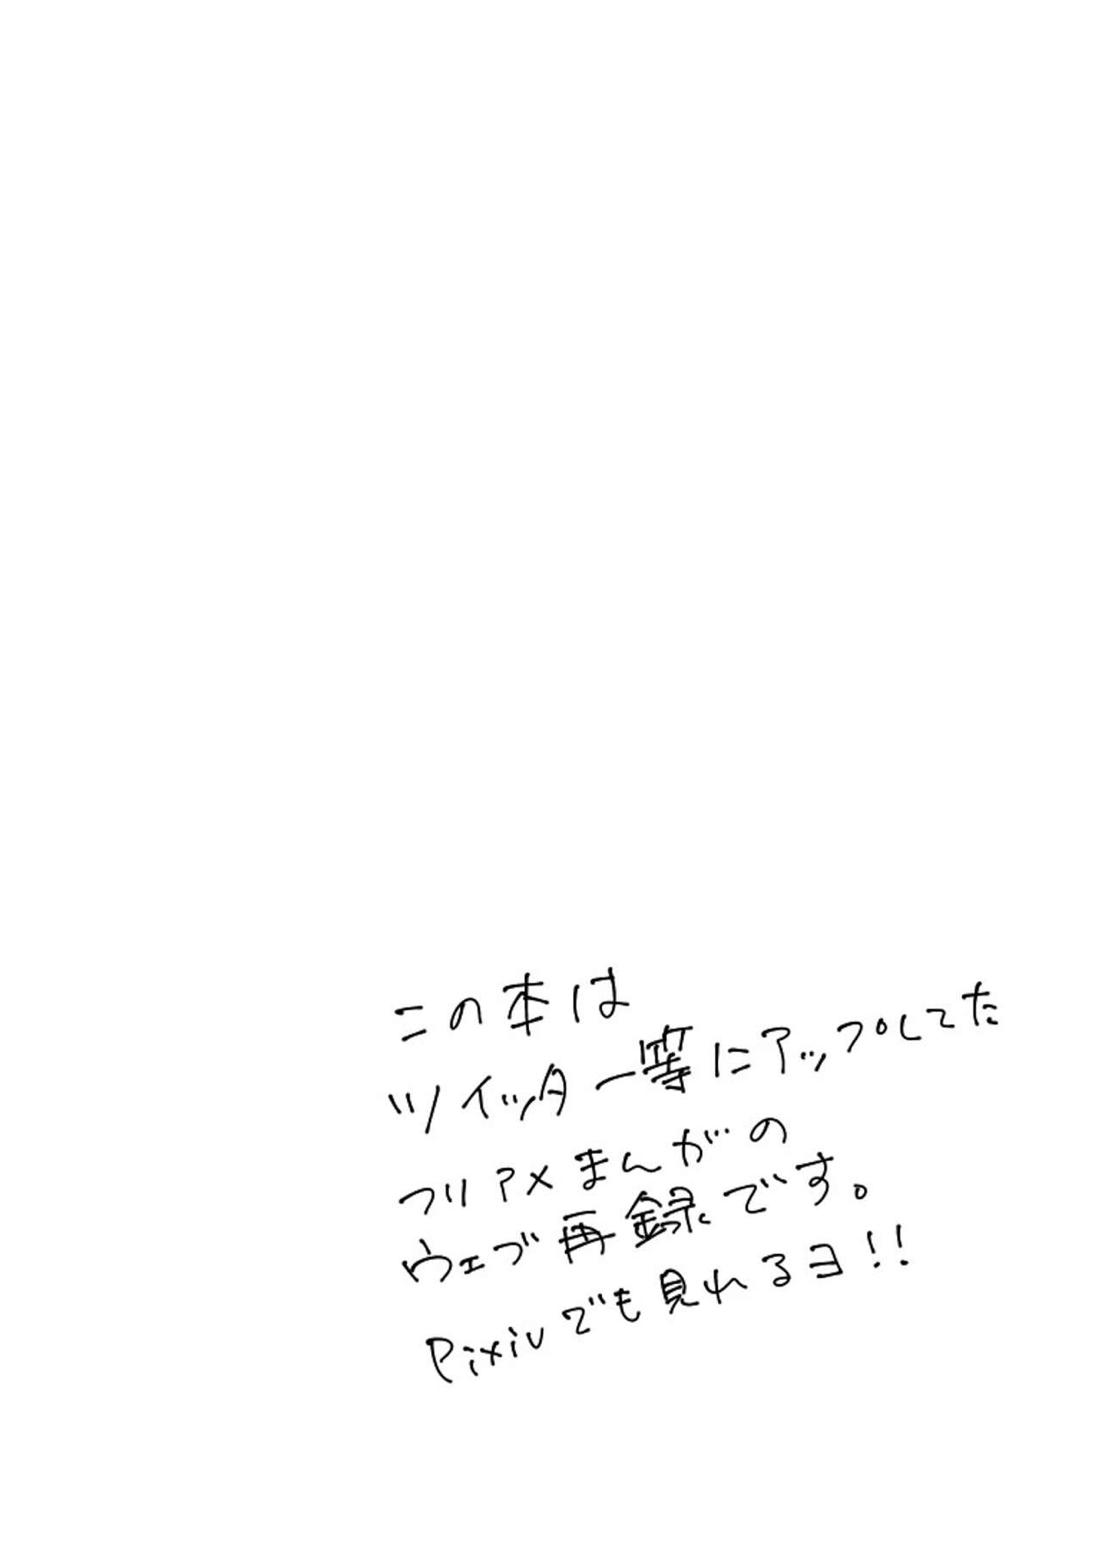 この本は
ツイッター等にアップしてた
フリアメまんがの
ウェブ再録です。
Pixivでも見れるヨ!!